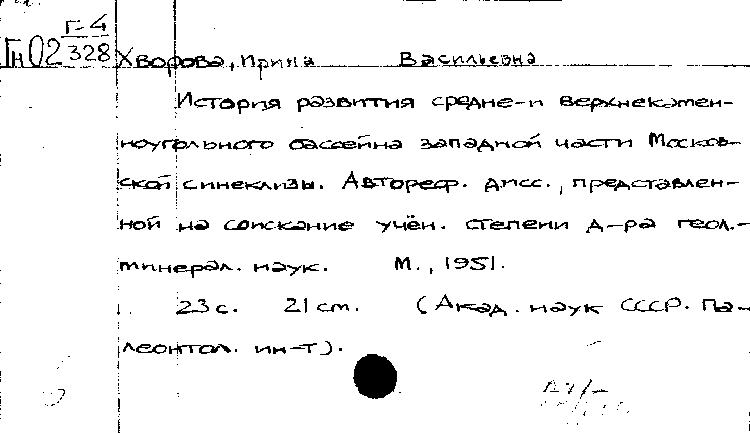 Г-4
Гн02 328
Хворова, Ирина Васильевна
История развития средне-и верхнекамен-
ноугольного бассейна западной части Москов-
ской синеклизы. Автореф. дисс., представлен-
ной на соискание учён. степени д-ра геол.-
минерал. наук. М., 1951.
23 с. 21 см. (Акад. наук СССР. Па-
леонтол. ин-т).